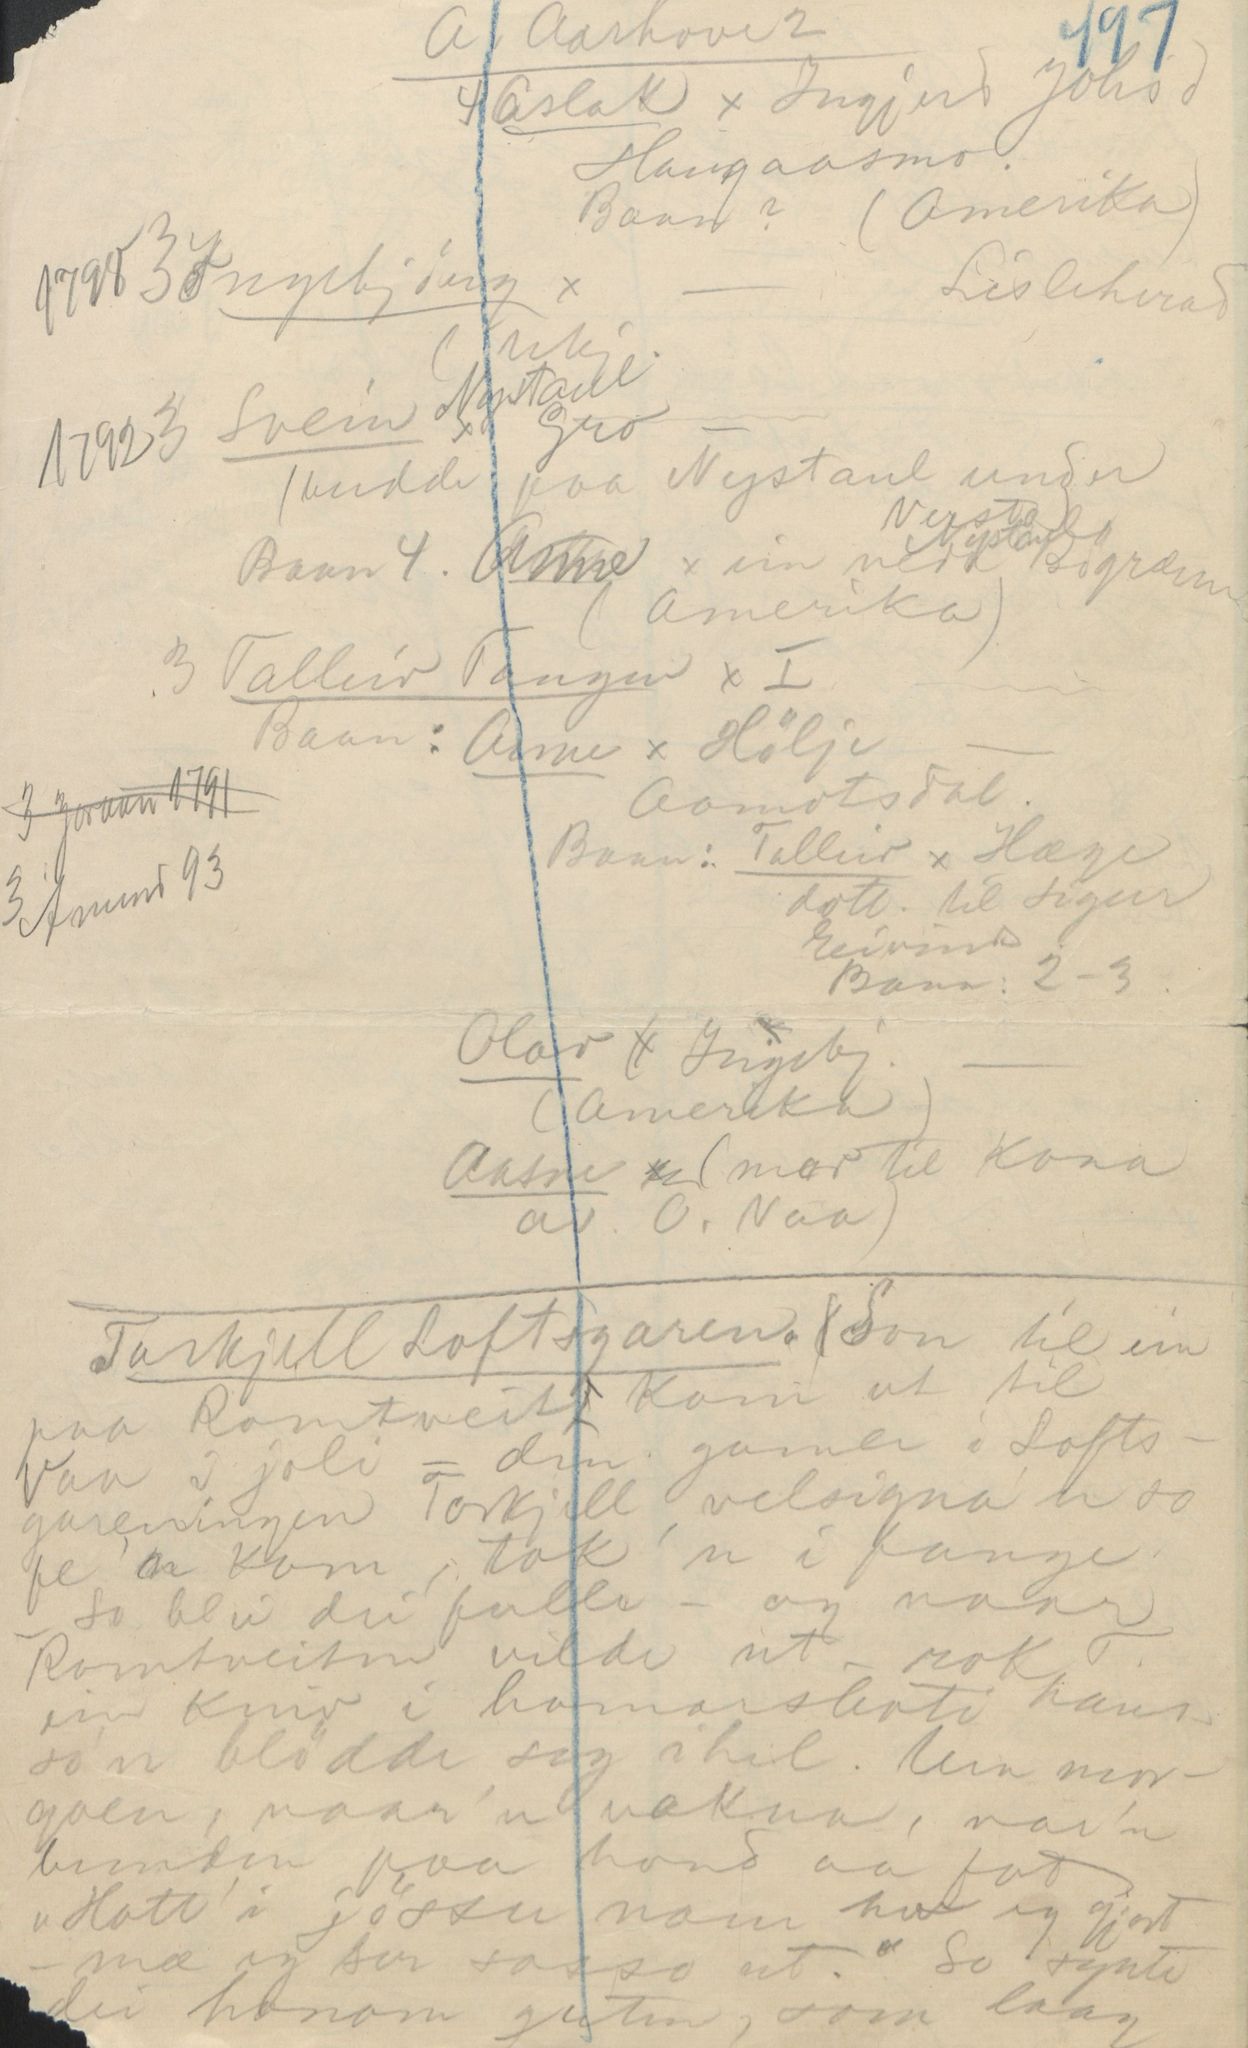 497
A. Aarhove 2
4 Aslak x Ingjerd Johsd
Haugaasmo.
Baan ? (Amerika)
1798 3 Ingebjörg x — Lisleherad
( ukj.
Nystaul
1792 3 Svein x Gro —
(budde paa Nystaul under
Verstad
Nystaul
Baan 4. Anne x ein
(Amerika)
3 Talleiv Tangen x I —
Baan: Anne x Hölje —
Aamotsdal.
3 Joraan 1791
Baan: Talleiv x Hæge
3 Amund 93
dott. til Sigur
Eivinds
Baan: 2-3.
Olav x Ingebj. —
(Amerika)
Aasne x (mor til Kona
av O. Naa)
Tarkjell Loftsgaren. (Son til ein
paa Romtveit) Kom ut til
Vaa i joli = din gamle i Lofts-
gareningen Torkjell velsigna 'n so
fe 'n kom, tok 'n i fange
- So blei dei fulle - og naar
Romtveiten vilde ut - rok T.
ein kniv i homarsboti hans
so'n blödde seg ihel. Um mor-
goen, naar'n vakna, var'n
bunden paa hond aa fot
"Hott' i jössu namn har eg gjort
- mæ eg ser sosso ut." So synte
dei honom guten, som laag